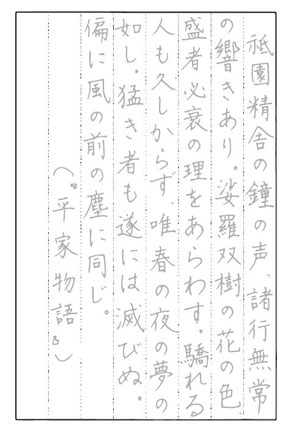 祇園精舎の鐘の声、諸行無常
の響きあり。娑羅双樹の花の色、
盛者必衰の理をあらわす。驕れる
人も久しからず唯春の夜の夢の
如し。猛き者も遂には滅びぬ。
偏に風の前の塵に同じ。
(『平家物語』)